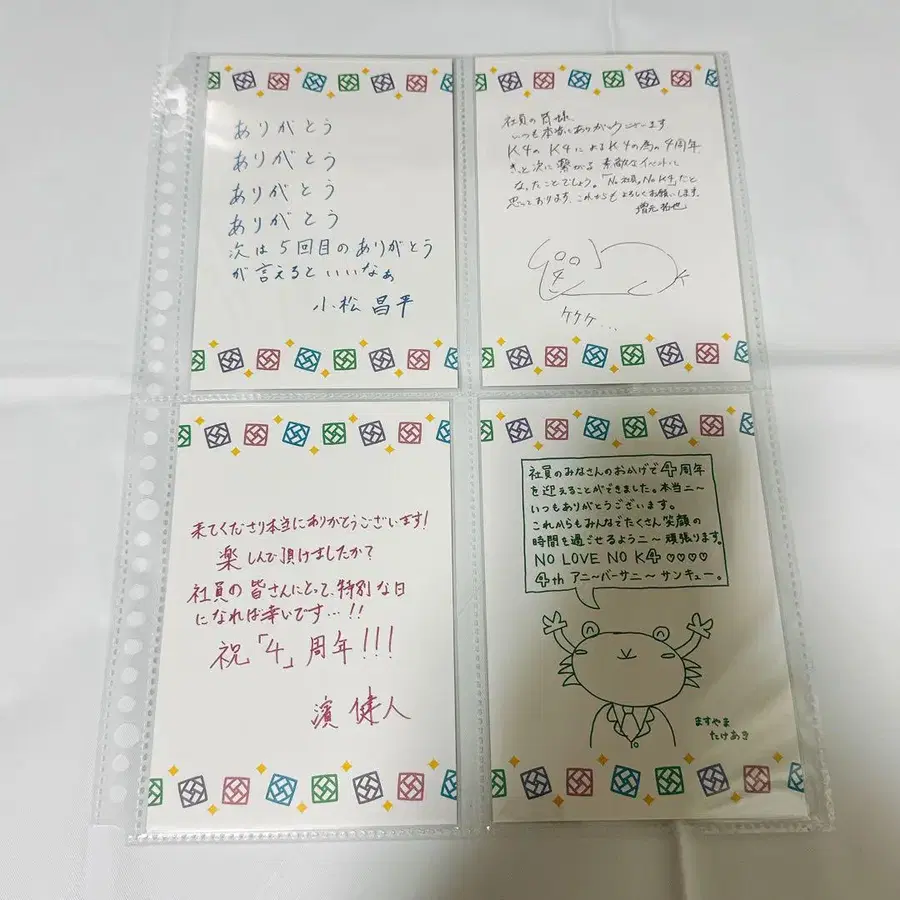 ありがとう
ありがとう
ありがとう
ありがとう
次は5回目のありがとう
が言えるといいなぁ
小松 昌平
社員の皆様、
いつも本当にありがとうございます
K4の K4による K4の為の4周年
きっと次に繋がる 素敵なイベントに
なったことでしょう。「No 社員, No K4」だと
思っております、これからもよろしくお願いします。
増元 拓也
ケケケ...
来てくださり本当にありがとうございます!
楽しんで頂けましたか?
社員の皆さんにとって、特別な日
になれば幸いです...!!
祝「4」周年!!!
濱 健人
社員のみなさんのおかげで4周年
を迎えることができました。本当ニ〜
いつもありがとうございます。
これからもみんなでたくさん笑顔の
時間を過ごせるようニ〜頑張ります。
NO LOVE NO K4 ♡♡♡♡
4th アニ〜バーサニ〜サンキュー。
ますやま
たけあき